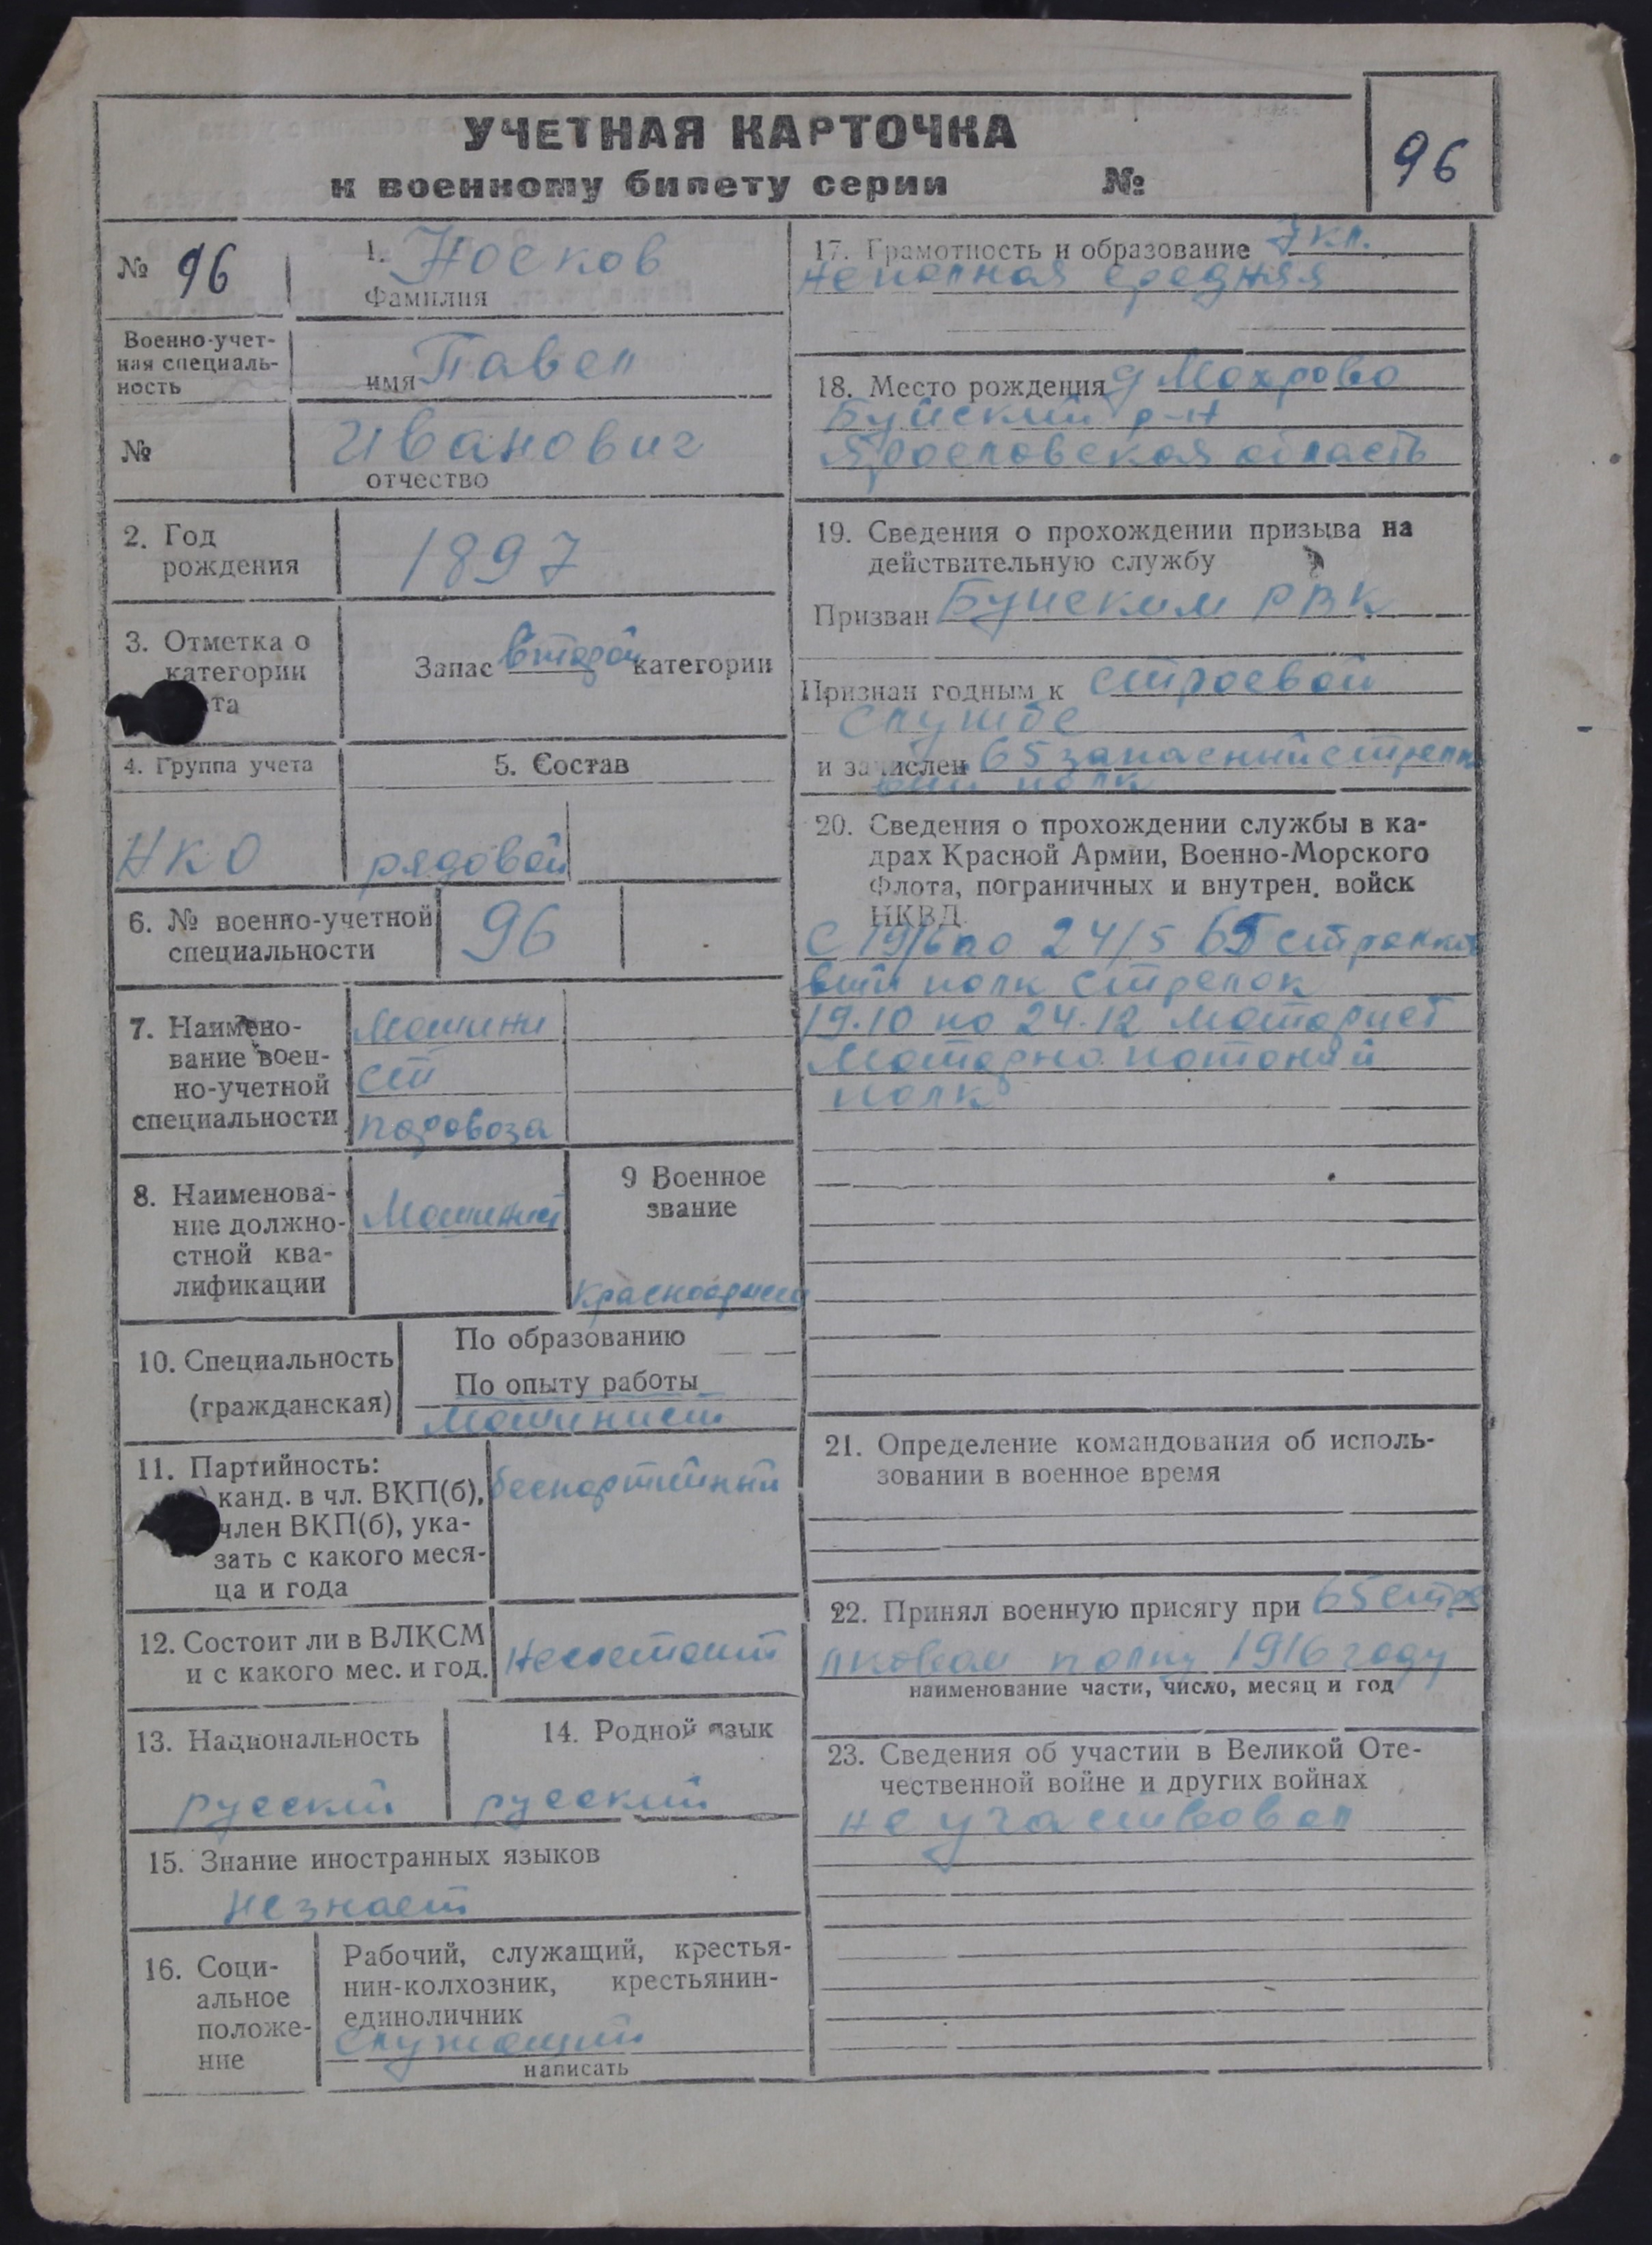 УЧЕТНАЯ КАРТОЧКА
к военному билету серии №
96
№ 96
1. Носков
Фамилия
Военно-учет-
ная специаль-
ность
имя Павел
№
Иванович
отчество
2. Год
рождения
1897
3. Отметка о
категории
та
Запас второй категории
4. Группа учета
НКО
5. Состав
рядовой
6. № военно-учетной
специальности
96
7. Наимено-
вание воен-
но-учетной
специальности
Машини
ст
паровоза
8. Наименова-
ние должно-
стной ква-
лификации
Машинист
9 Военное
звание
красноармеец
10. Специальность
(гражданская)
По образованию
По опыту работы
Машинист
11. Партийность:
) канд. в чл. ВКП(б),
член ВКП(б), ука-
зать с какого меся-
ца и года
беспартийный
12. Состоит ли в ВЛКСМ
и с какого мес. и год.
Несостоит
13. Национальность
русский
14. Родной язык
русский
15. Знание иностранных языков
незнает
16. Соци-
альное
положе-
ние
Рабочий, служащий, крестья-
нин-колхозник, крестьянин-
единоличник
служащий
написать
17. Грамотность и образование 7 кл.
неполная средняя
18. Место рождения д Мохрово
Буйский р-н
Ярославская область
19. Сведения о прохождении призыва на
действительную службу
Призван Буйским РВК
Признан годным к строевой
службе
и зачислен 65 запасный стрелк
вый полк
20. Сведения о прохождении службы в ка-
драх Красной Армии, Военно-Морского
Флота, пограничных и внутрен. войск
НКВД.
С 19/6 по 24/5 65 стрелко
вый полк стрелок
19.10 по 24.12 моторист
Моторно понтоный
полк
21. Определение командования об исполь-
зовании в военное время
22. Принял военную присягу при 65 стре
лковом полку 1916 году
наименование части, число, месяц и год
23. Сведения об участии в Великой Оте-
чественной войне и других войнах
не участвовал